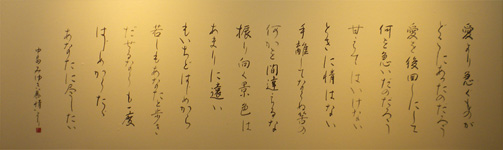 愛より急ぐものが
どこにあったのだろう
愛を後回しにして
何を急いだのだろう
甘えてはいけない
ときに情はない
手離してならぬ筈の
何かを間違えるな
振り向く景色は
あまりに遠い
もいちどはじめから
もしもあなたと歩き
だせるなら もう一度
はじめから ただ
あなたに尽くしたい
中島みゆき